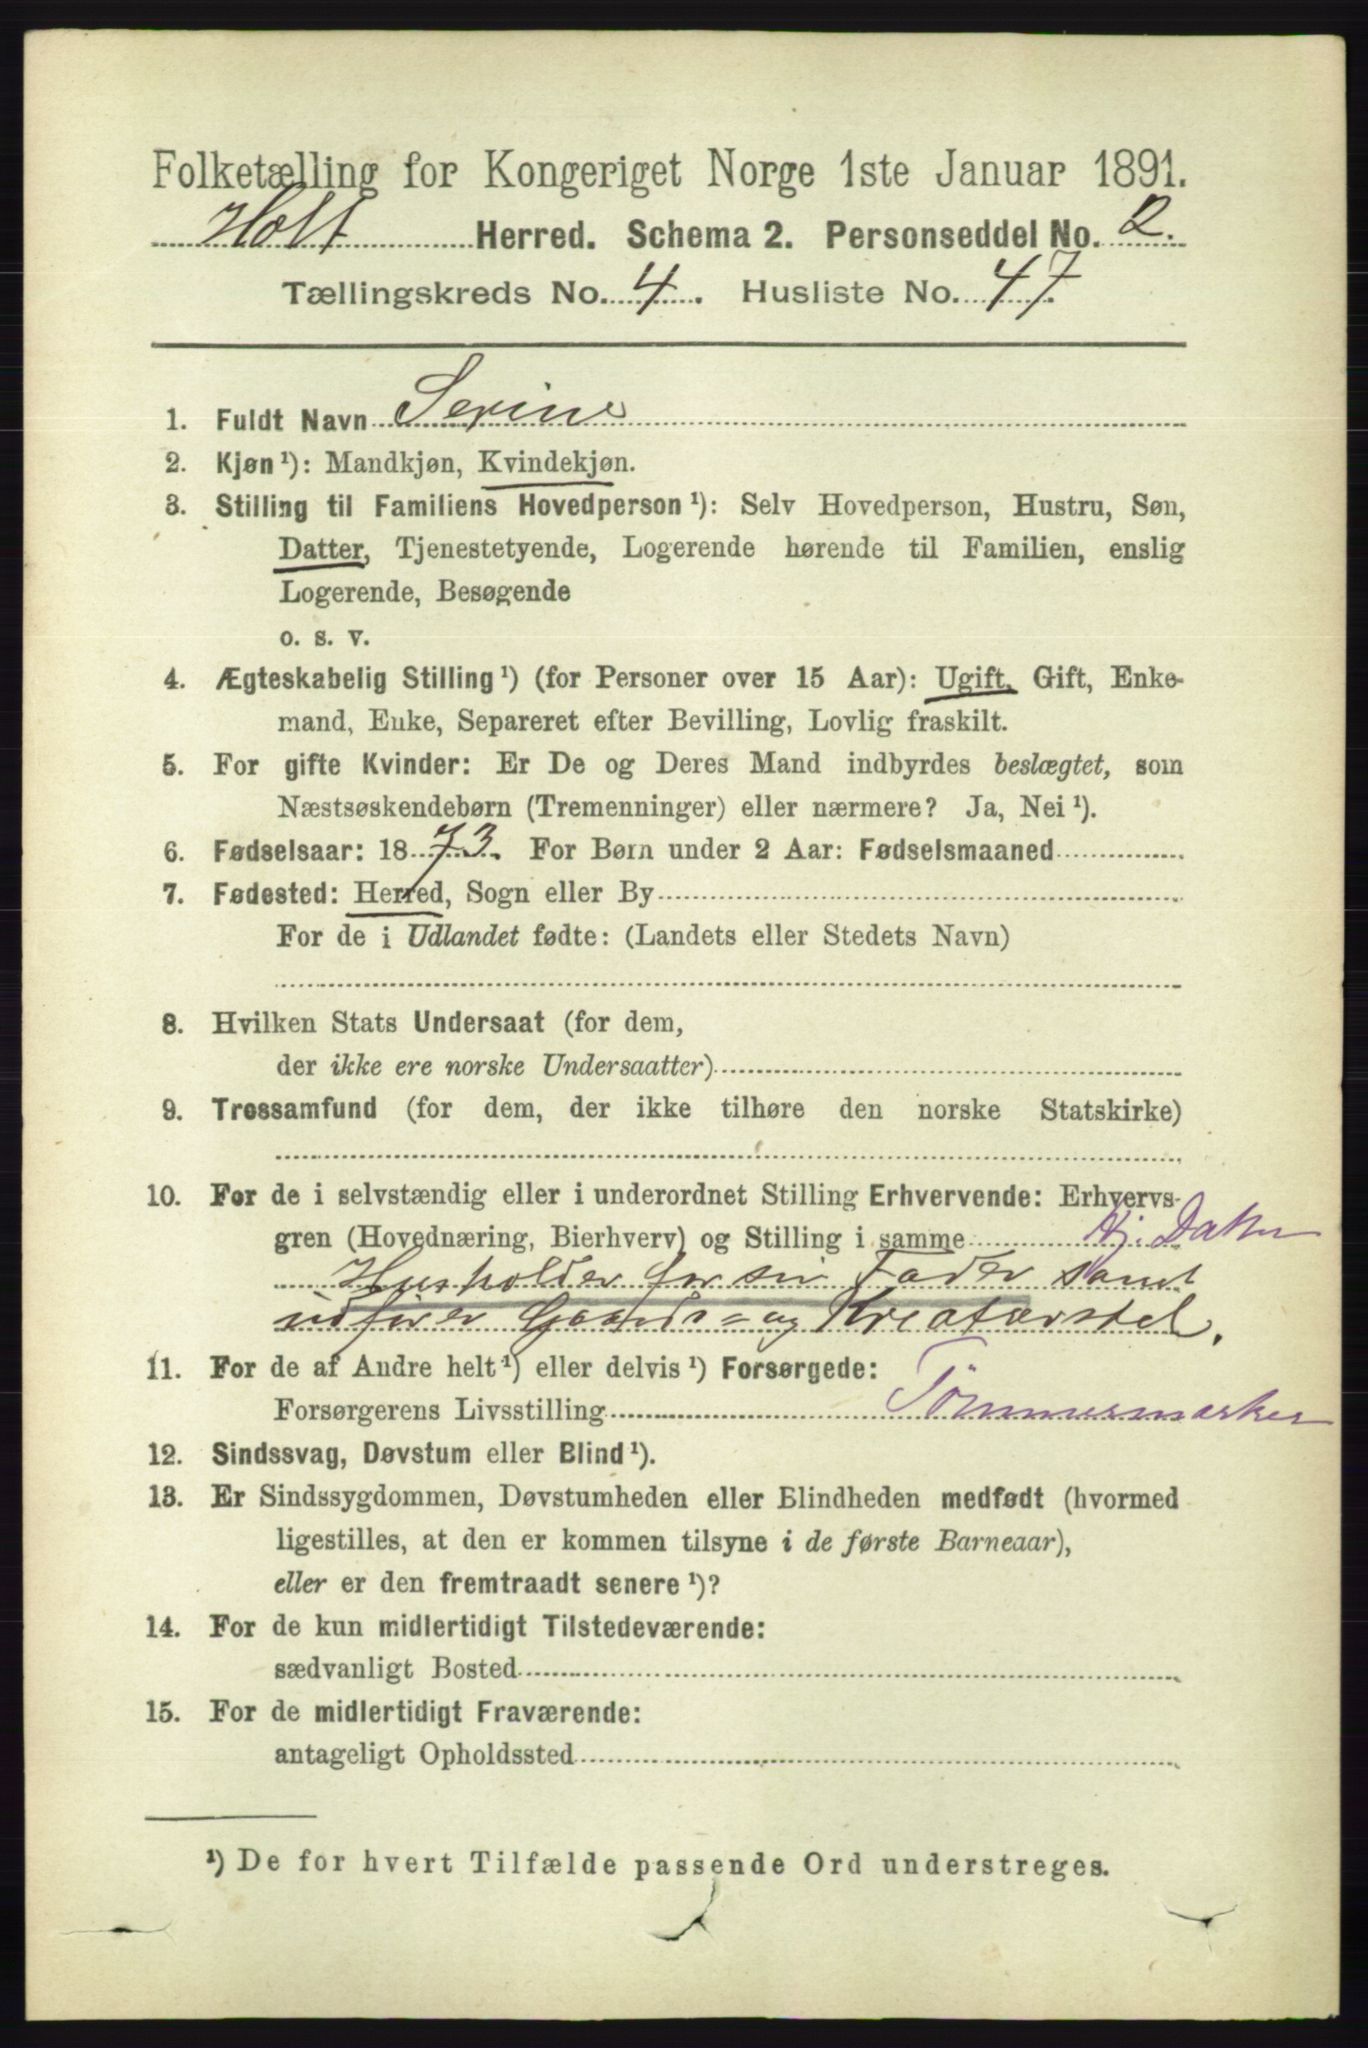 Folketælling for Kongeriget Norge 1ste Januar 1891.
Holt Herred. Schema 2. Personseddel No. 2.
Tællingskreds No. 4. Husliste No. 47.
1. Fuldt Navn Serine
2. Kjøn ¹): Mandkjøn, Kvindekjøn.
3. Stilling til Familiens Hovedperson ¹): Selv Hovedperson, Hustru, Søn,
Datter, Tjenestetyende, Logerende hørende til Familien, enslig
Logerende, Besøgende
o. s. v.
4. Ægteskabelig Stilling ¹) (for Personer over 15 Aar): Ugift, Gift, Enke-
mand, Enke, Separeret efter Bevilling, Lovlig fraskilt.
5. For gifte Kvinder: Er De og Deres Mand indbyrdes beslægtet, som
Næstsøskendebørn (Tremenninger) eller nærmere? Ja, Nei ¹).
6. Fødselsaar: 1873. For Børn under 2 Aar: Fødselsmaaned
7. Fødested: Herred, Sogn eller By
For de i Udlandet fødte: (Landets eller Stedets Navn)
8. Hvilken Stats Undersaat (for dem,
der ikke ere norske Undersaatter)
9. Trossamfund (for dem, der ikke tilhøre den norske Statskirke)
10. For de i selvstændig eller i underordnet Stilling Erhvervende: Erhvervs-
gren (Hovednæring, Bierhverv) og Stilling i samme Hj. Datter
Husholder for sin Fader samt
udfører Gaards= og Kreaturstel.
11. For de af Andre helt ¹) eller delvis ¹) Forsørgede:
Forsørgerens Livsstilling Tömmermærker
12. Sindssvag, Døvstum eller Blind ¹).
13. Er Sindssygdommen, Døvstumheden eller Blindheden medfødt (hvormed
ligestilles, at den er kommen tilsyne i de første Barneaar),
eller er den fremtraadt senere ¹)?
14. For de kun midlertidigt Tilstedeværende:
sædvanligt Bosted
15. For de midlertidigt Fraværende:
antageligt Opholdssted
¹) De for hvert Tilfælde passende Ord understreges.